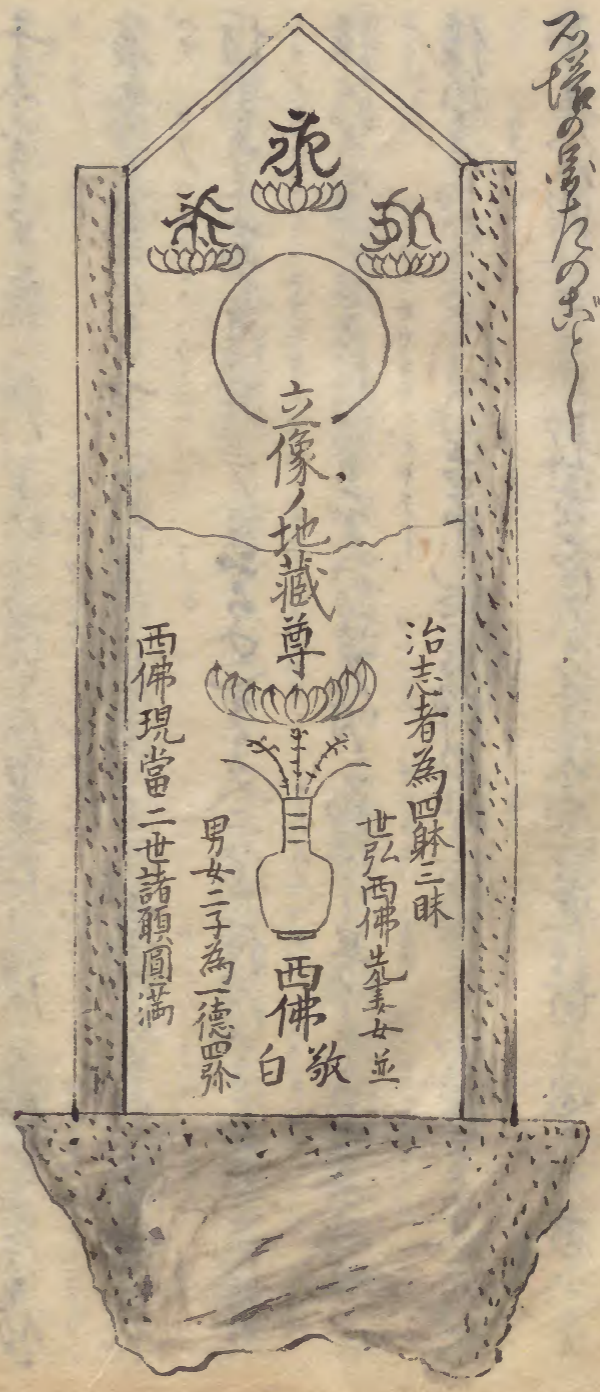 石塔の図左のごとし
立像ノ地蔵尊
治志者為四躰三昧
世弘西佛先妻女並
西佛
敬白
男女二子為一徳四弥
西佛現當二世諸願圓満